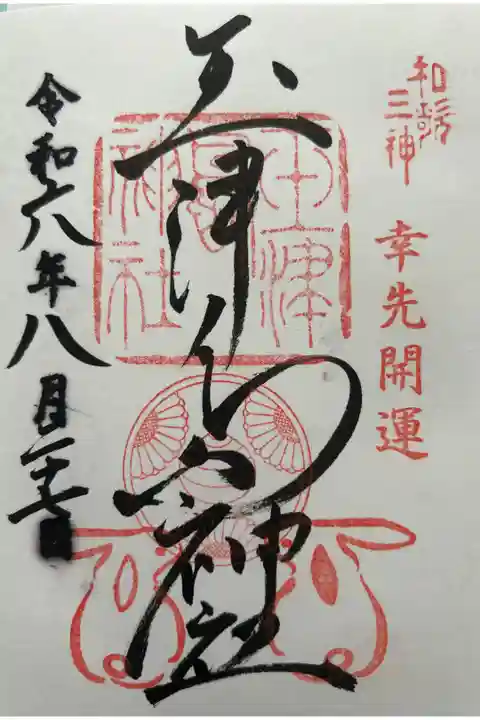 和歌三神
幸先開運
玉津島神社
令和六年八月二十七日